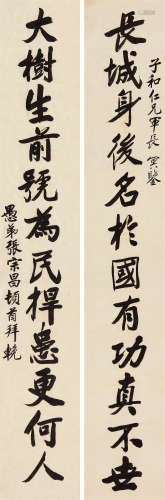 子和仁兄軍長 冥鑒
長城身後名於國有功真不世
大樹生前號為民捍患更何人
愚弟張宗昌頓首拜輓